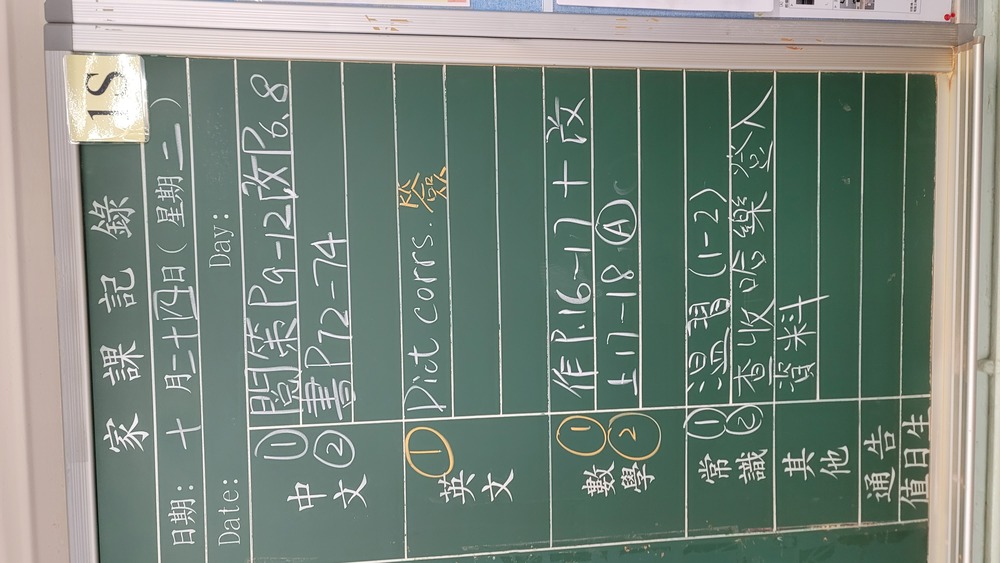 1S
家課記錄
日期: 十月二十四日(星期二)
Date: Day:
中文 ① 閱策P9-12改P6.8
② 書P72-74
英文 ① Dict corrs.
數學 ① 作P.16-17+改
② 上17-18 Ⓐ
常識 ① 溫習 (1-2)
② 查收哈樂登入
資料
其他
通告
值日生